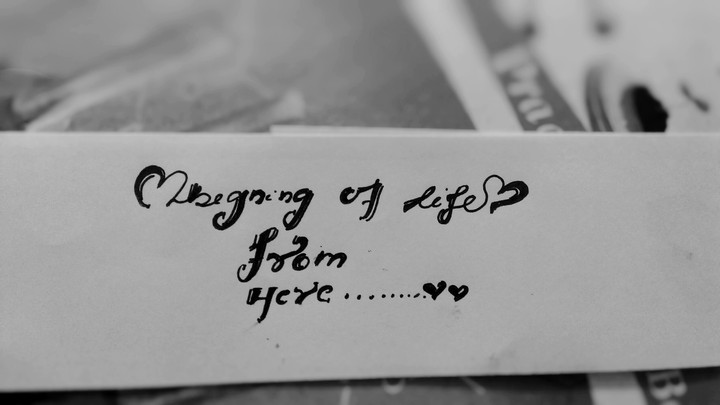 Prac
♡begning of life♡
From
Here.........♥♥